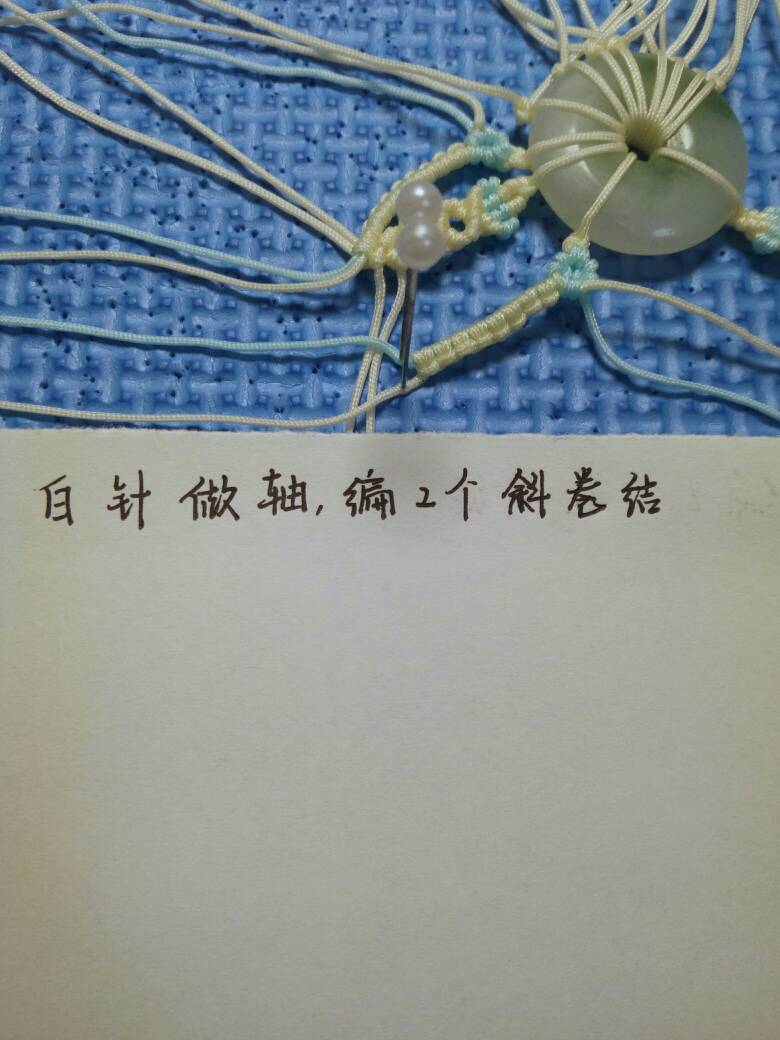 白针做轴,编2个斜卷结